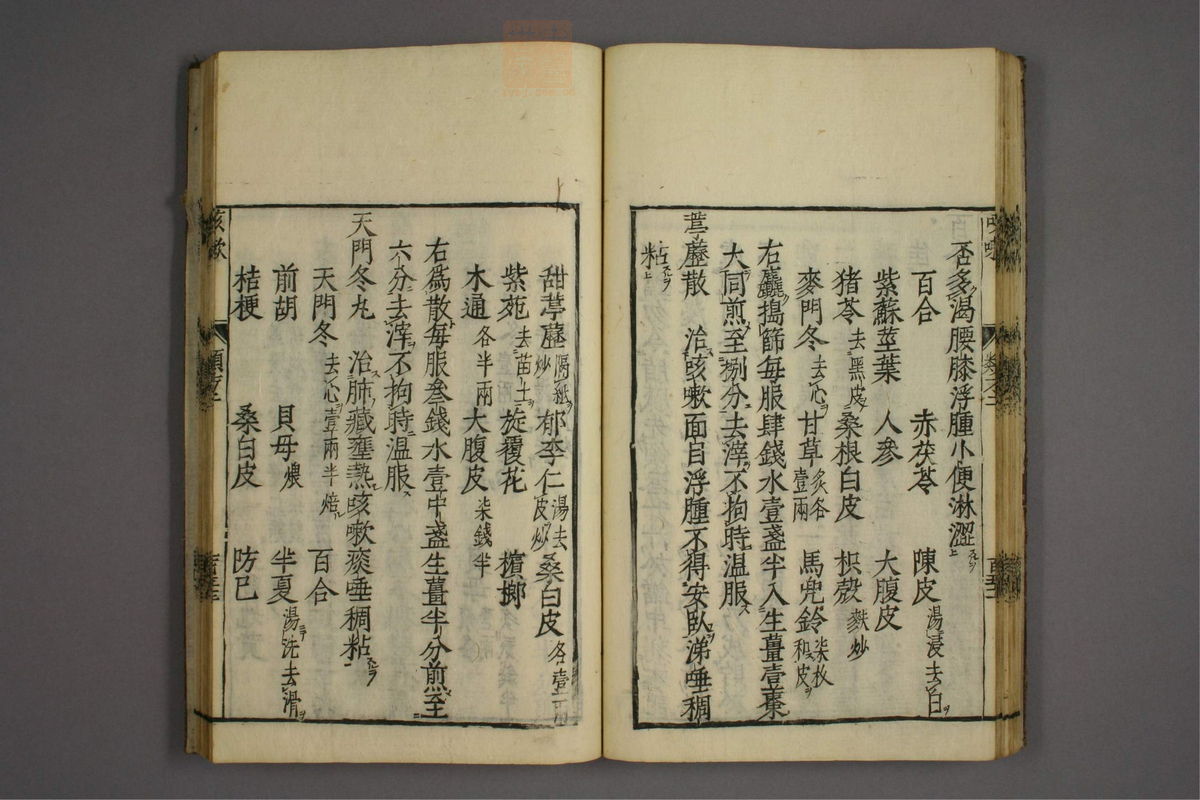 否多渴腰膝浮腫小便淋澀
百合 赤茯苓 陳皮湯浸去白
紫蘇莖葉 人參 大腹皮
猪苓去黑皮 桑根白皮 枳殼麩炒
麥門冬去心 甘草炙各壹兩 馬兜鈴柒枚和皮
右麤搗篩每服肆錢水壹盞半入生薑壹棗
大同煎至捌分去滓不拘時溫服
葶藶散 治咳嗽面目浮腫不得安臥涕唾稠
粘
甜葶藶隔紙炒 郁李仁湯去皮炒 桑白皮各壹兩
紫菀去苗土 旋覆花 檳榔
木通各半兩 大腹皮柒錢半
右爲散每服叁錢水壹中盞生薑半分煎至
六分去滓不拘時溫服
天門冬丸 治肺藏壅熱咳嗽痰唾稠粘
天門冬去心壹兩半焙 百合
前胡 貝母煨 半夏湯洗去滑
桔梗 桑白皮 防已
咳嗽